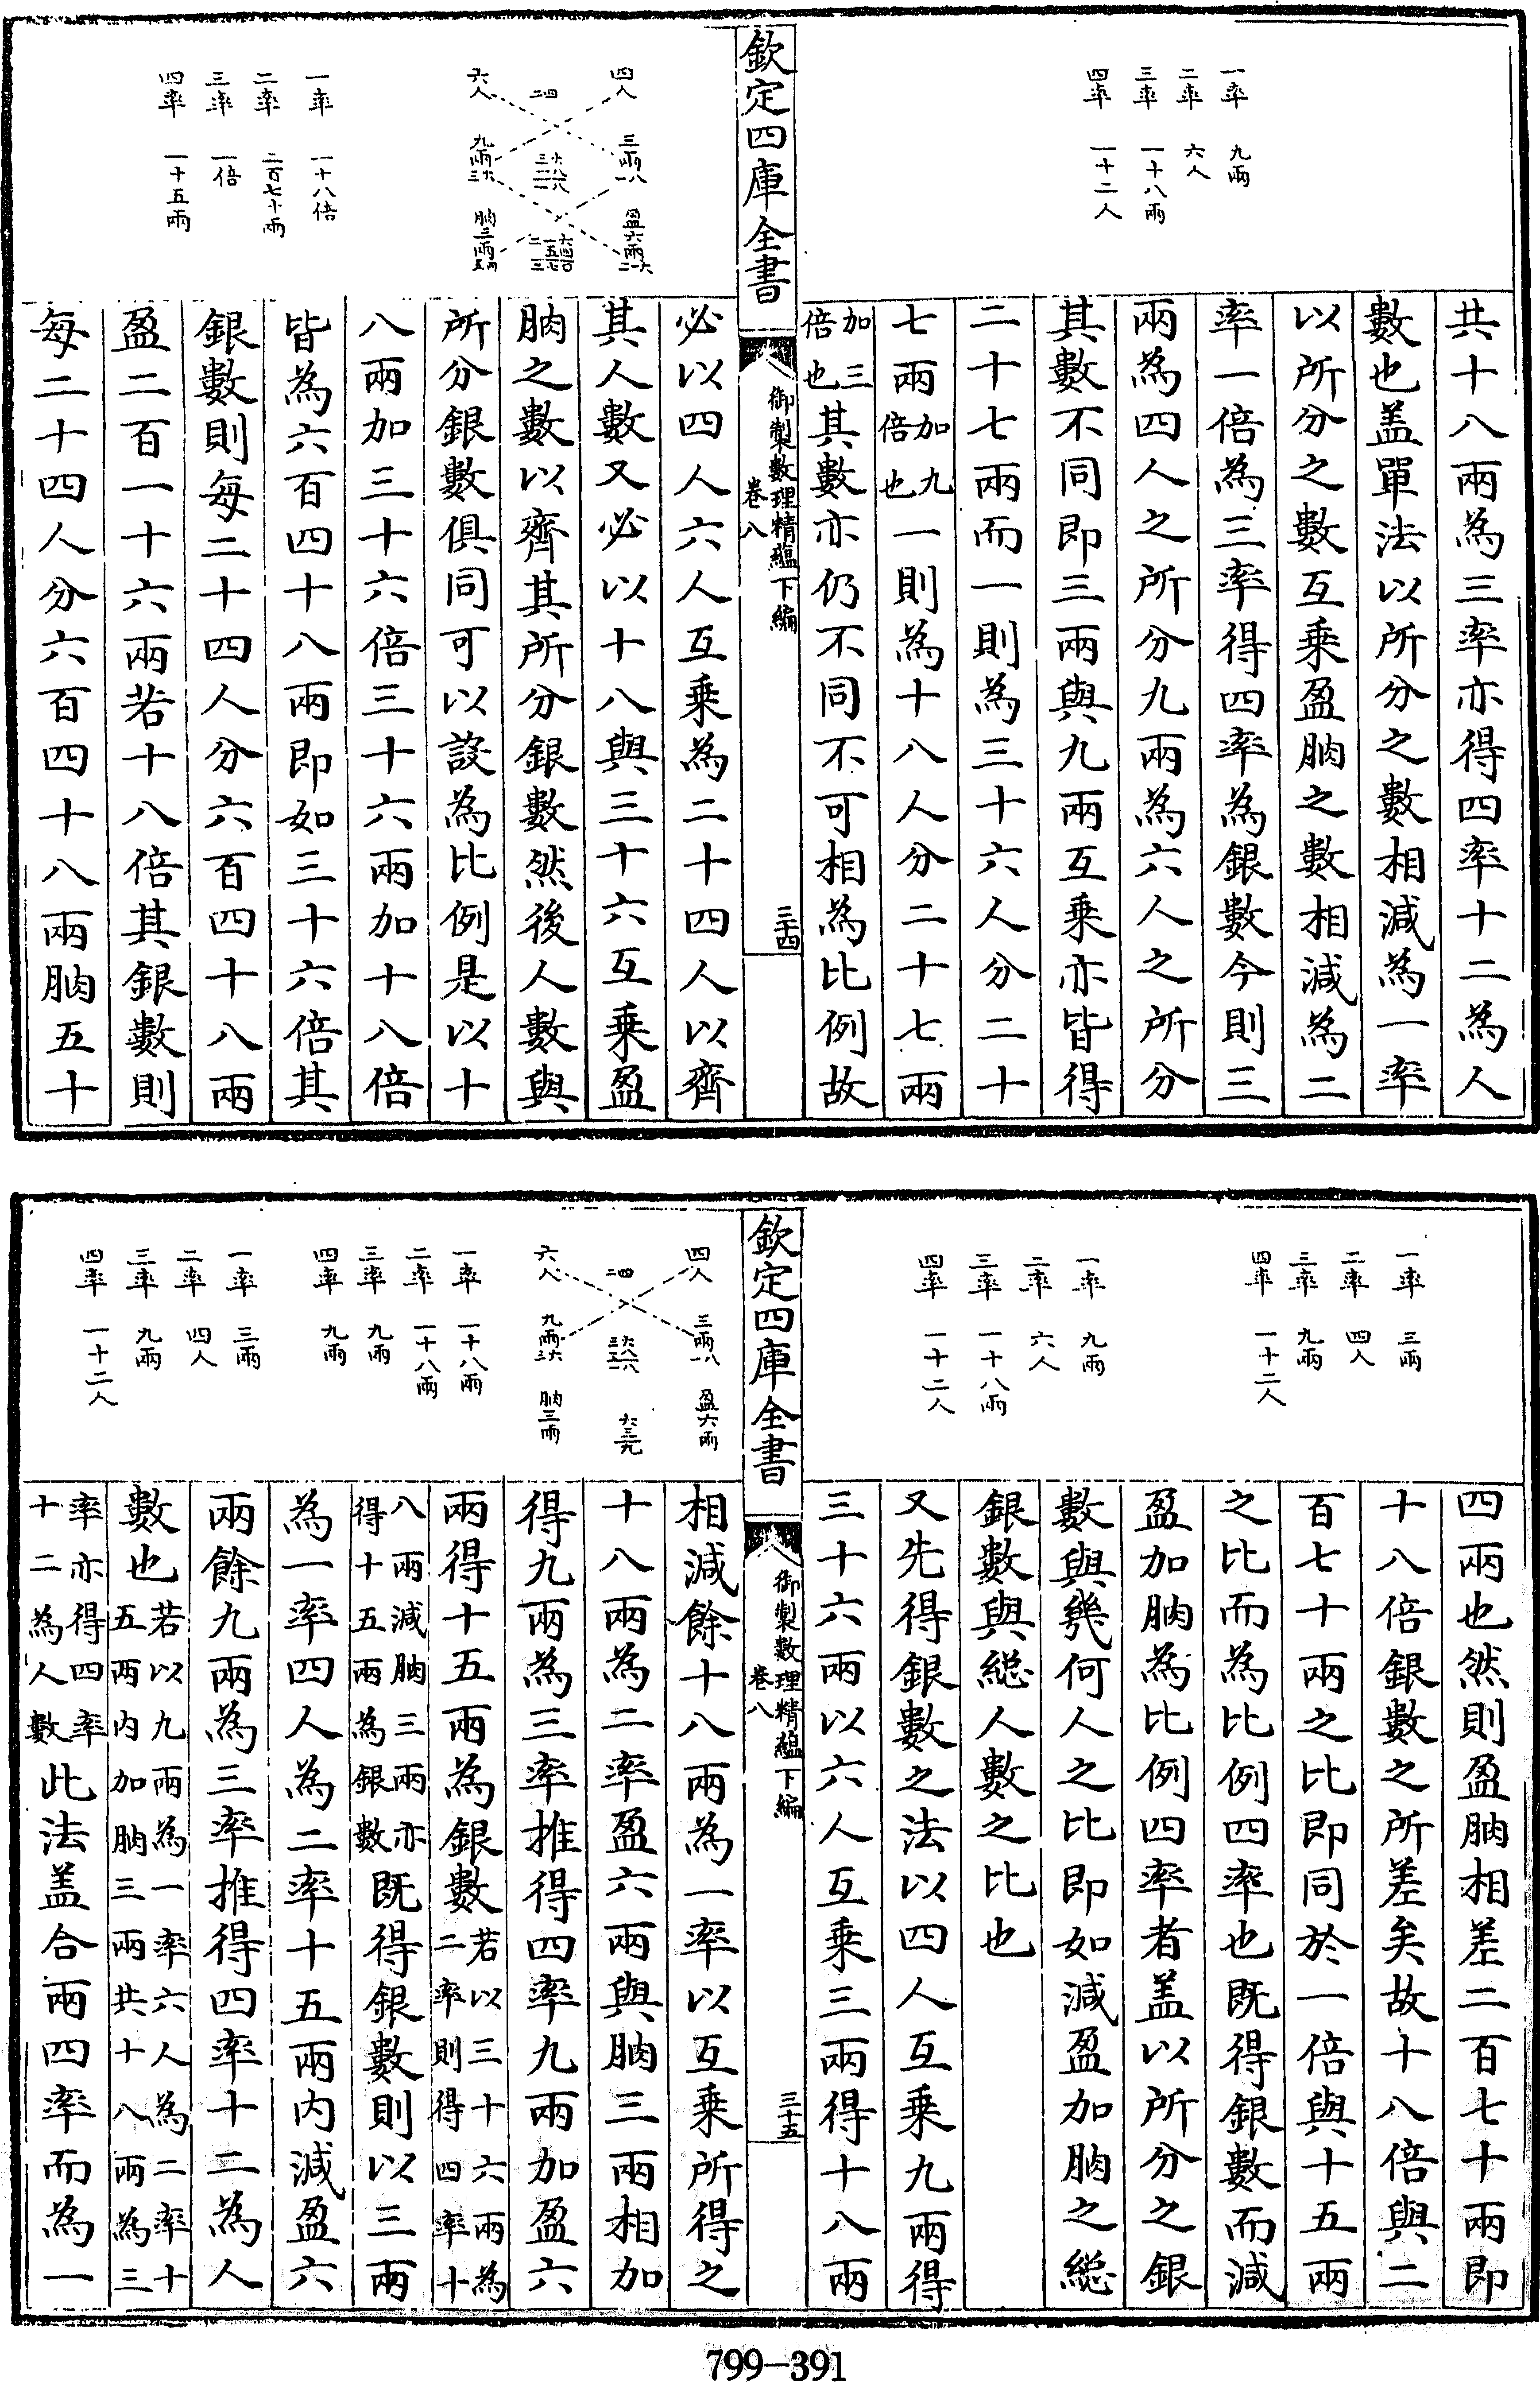 一率　九兩
二率　六人
三率　一十八兩
四率　一十二人
共十八兩為三率亦得四率十二為人
數也盖單法以所分之數相減為一率
以所分之數互乘盈朒之數相減為二
率一倍為三率得四率為銀數今則三
兩為四人之所分九兩為六人之所分
其數不同即三兩與九兩互乘亦皆得
二十七兩而一則為三十六人分二十
七兩加九倍也一則為十八人分二十七兩
加三倍也其數亦仍不同不可相為比例故
欽定四庫全書
御製數理精蘊下編
卷八
三十四
四人　三兩　盈六兩
二四
六人　九兩　朒三兩
一率　一十八倍
二率　二百七十兩
三率　一倍
四率　一十五兩
必以四人六人互乘為二十四人以齊
其人數又必以十八與三十六互乘盈
朒之數以齊其所分銀數然後人數與
所分銀數俱同可以設為比例是以十
八兩加三十六倍三十六兩加十八倍
皆為六百四十八兩即如三十六倍其
銀數則每二十四人分六百四十八兩
盈二百一十六兩若十八倍其銀數則
每二十四人分六百四十八兩朒五十
一率　三兩
二率　四人
三率　九兩
四率　一十二人
一率　九兩
二率　六人
三率　一十八兩
四率　一十二人
四兩也然則盈朒相差二百七十兩即
十八倍銀數之所差矣故十八倍與二
百七十兩之比即同於一倍與十五兩
之比而為比例四率也既得銀數而減
盈加朒為比例四率者盖以所分之銀
數與幾何人之比即如減盈加朒之總
銀數與總人數之比也
又先得銀數之法以四人互乘九兩得
三十六兩以六人互乘三兩得十八兩
欽定四庫全書
御製數理精蘊下編
卷八
三十五
四人　三兩　盈六兩
二四
六人　九兩　朒三兩
一率　一十八兩
二率　一十八兩
三率　九兩
四率　九兩
一率　三兩
二率　四人
三率　九兩
四率　一十二人
相減餘十八兩為一率以互乘所得之
十八兩為二率盈六兩與朒三兩相加
得九兩為三率推得四率九兩加盈六
兩得十五兩為銀數若以三十六兩為二率則得四率十
八兩減朒三兩亦得十五兩為銀數既得銀數則以三兩
為一率四人為二率十五兩内減盈六
兩餘九兩為三率推得四率十二為人
數也若以九兩為一率六人為二率十五两内加朒三兩共十八兩為三
率亦得四率十二為人數此法盖合兩四率而為一
799-391